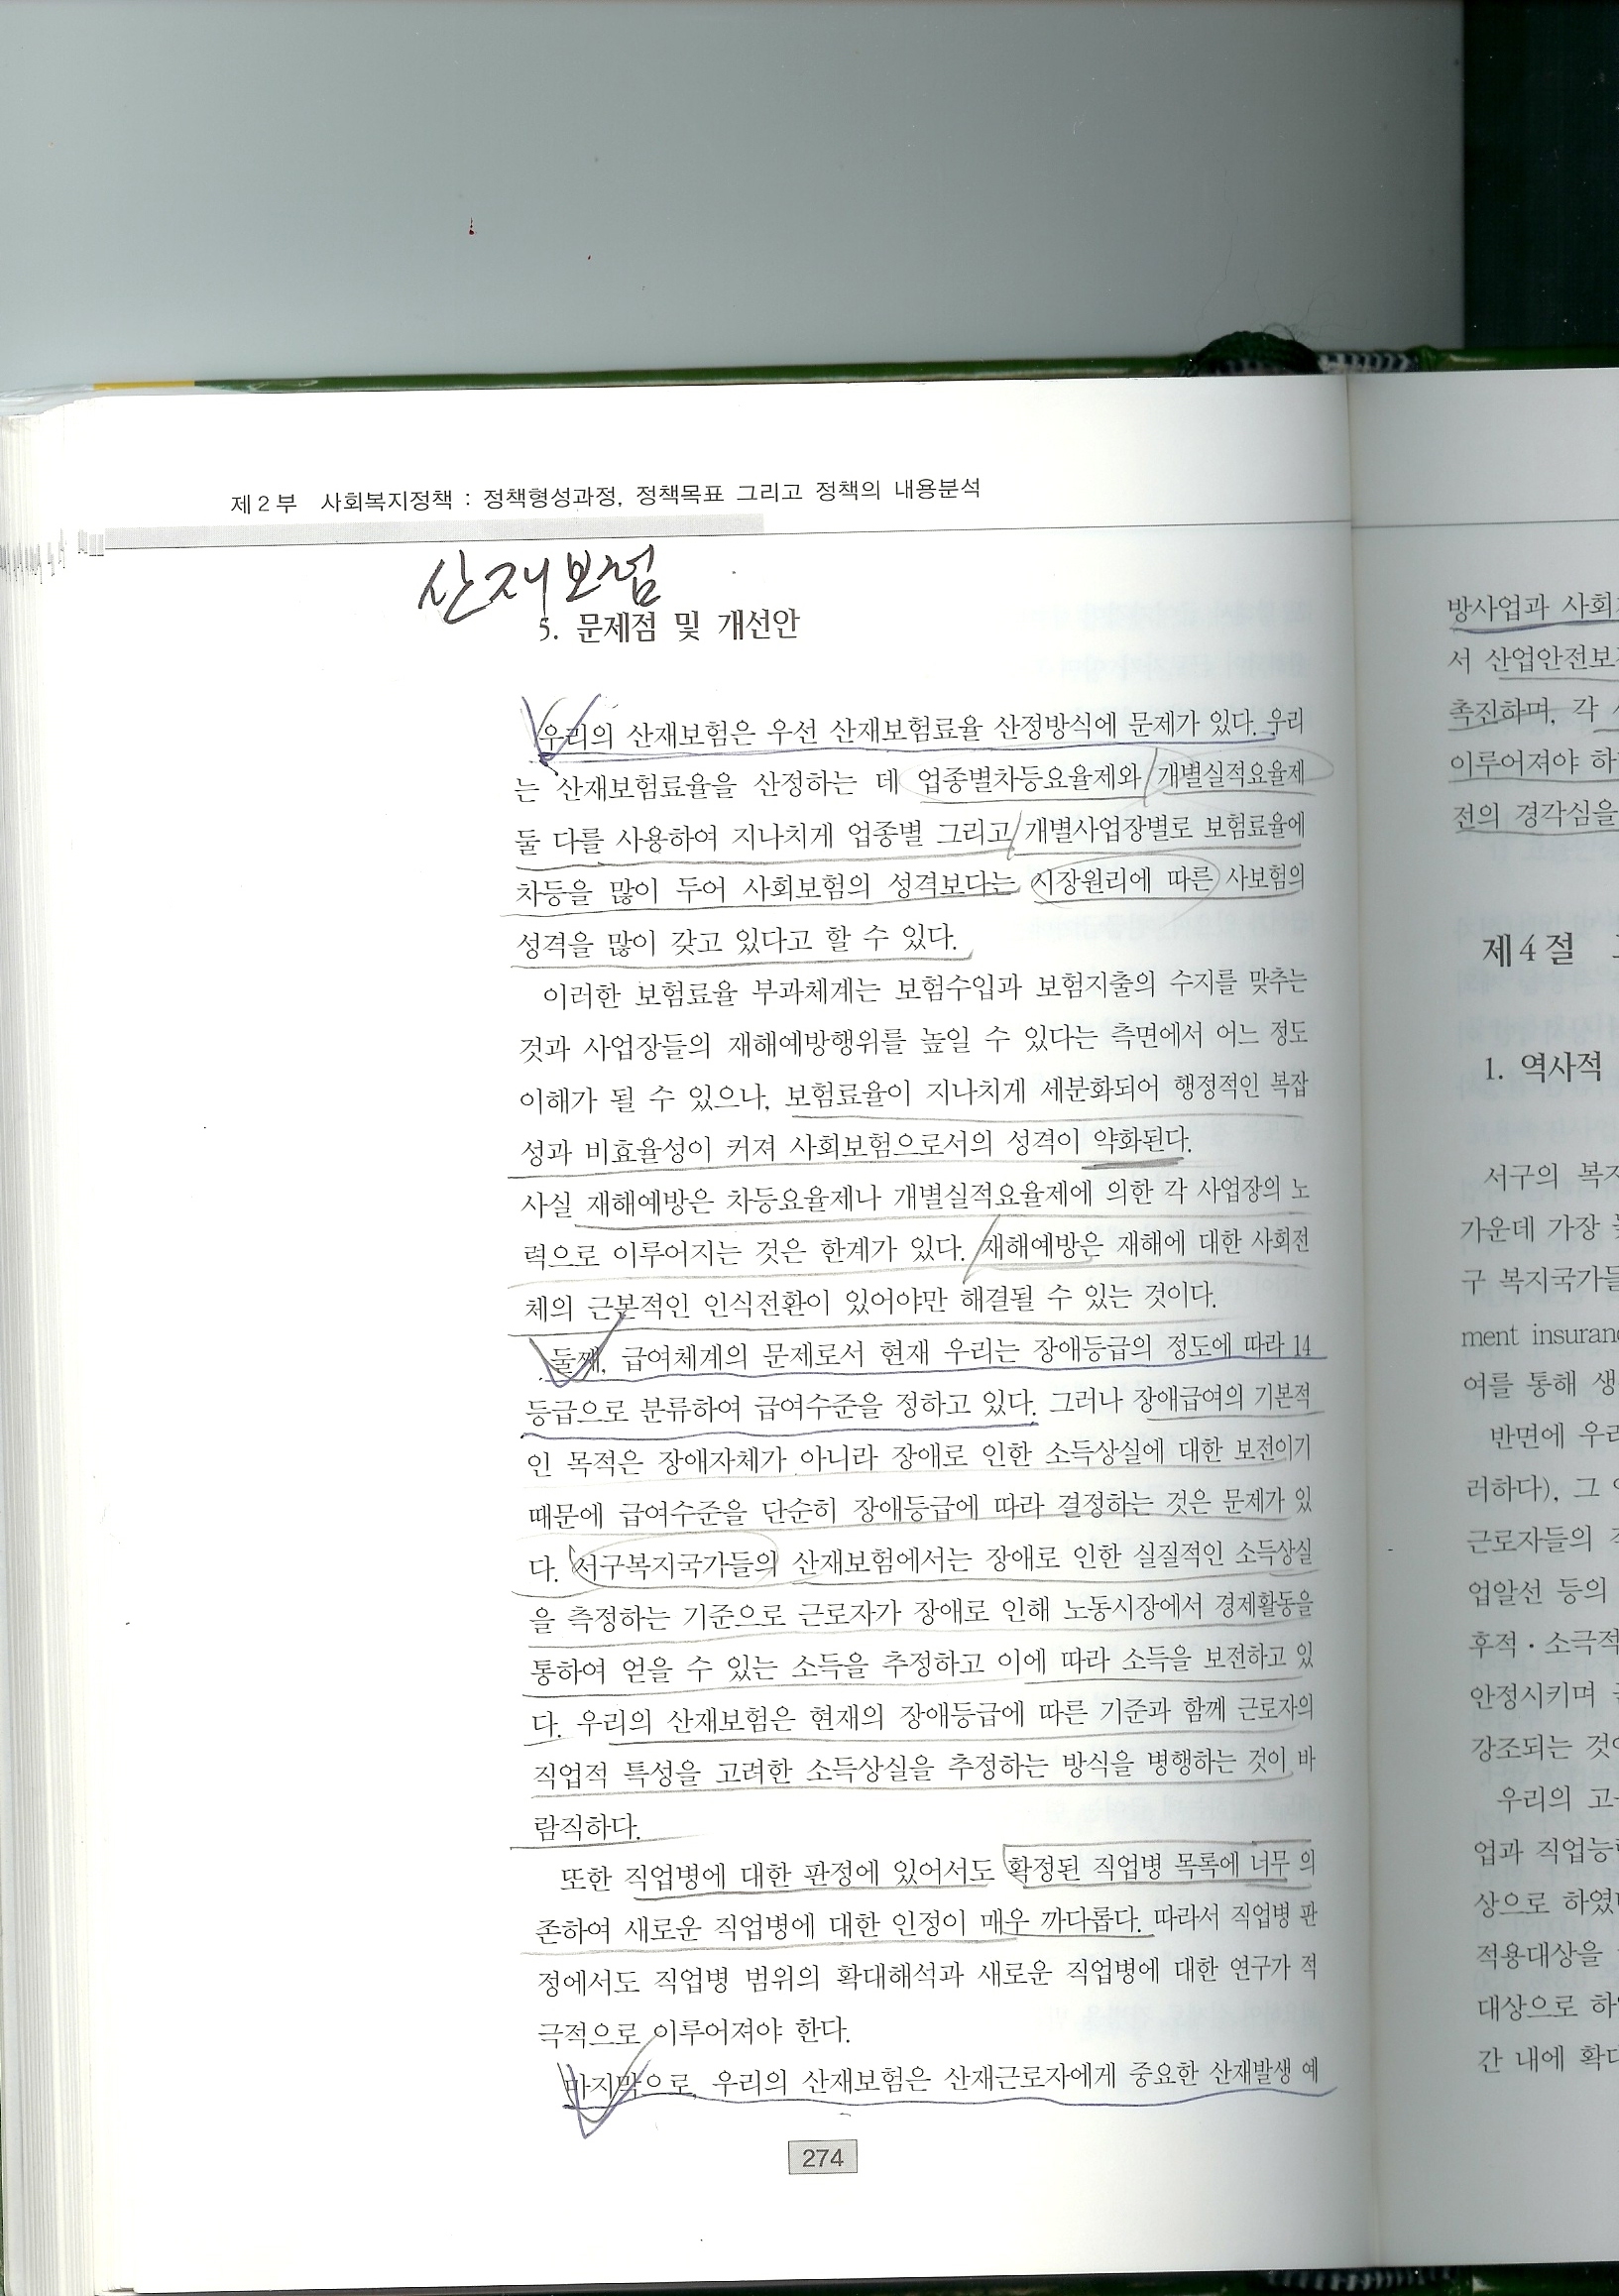 제2부 사회복지정책 : 정책형성과정, 정책목표 그리고 정책의 내용분석
산재보험
5. 문제점 및 개선안
우리의 산재보험은 우선 산재보험료율 산정방식에 문제가 있다. 우리
는 산재보험료율을 산정하는 데 업종별차등요율제와 개별실적요율제
둘 다를 사용하여 지나치게 업종별 그리고 개별사업장별로 보험료율에
차등을 많이 두어 사회보험의 성격보다는 시장원리에 따른 사보험의
성격을 많이 갖고 있다고 할 수 있다.
이러한 보험료율 부과체계는 보험수입과 보험지출의 수지를 맞추는
것과 사업장들의 재해예방행위를 높일 수 있다는 측면에서 어느 정도
이해가 될 수 있으나, 보험료율이 지나치게 세분화되어 행정적인 복잡
성과 비효율성이 커져 사회보험으로서의 성격이 약화된다.
사실 재해예방은 차등요율제나 개별실적요율제에 의한 각 사업장의 노
력으로 이루어지는 것은 한계가 있다. 재해예방은 재해에 대한 사회전
체의 근본적인 인식전환이 있어야만 해결될 수 있는 것이다.
둘째, 급여체계의 문제로서 현재 우리는 장애등급의 정도에 따라 14
등급으로 분류하여 급여수준을 정하고 있다. 그러나 장애급여의 기본적
인 목적은 장애자체가 아니라 장애로 인한 소득상실에 대한 보전이기
때문에 급여수준을 단순히 장애등급에 따라 결정하는 것은 문제가 있
다. 서구복지국가들의 산재보험에서는 장애로 인한 실질적인 소득상실
을 측정하는 기준으로 근로자가 장애로 인해 노동시장에서 경제활동을
통하여 얻을 수 있는 소득을 추정하고 이에 따라 소득을 보전하고 있
다. 우리의 산재보험은 현재의 장애등급에 따른 기준과 함께 근로자의
직업적 특성을 고려한 소득상실을 추정하는 방식을 병행하는 것이 바
람직하다.
또한 직업병에 대한 판정에 있어서도 확정된 직업병 목록에 너무 의
존하여 새로운 직업병에 대한 인정이 매우 까다롭다. 따라서 직업병 판
정에서도 직업병 범위의 확대해석과 새로운 직업병에 대한 연구가 적
극적으로 이루어져야 한다.
마지막으로, 우리의 산재보험은 산재근로자에게 중요한 산재발생 예
274
방사업과 사회
서 산업안전보
촉진하며, 각
이루어져야 하
전의 경각심을
제4절
1. 역사적
서구의 복지
가운데 가장
구 복지국가들
ment insuran
여를 통해 생
반면에 우리
러하다), 그
근로자들의
업알선 등의
후적·소극적
안정시키며
강조되는 것이
우리의 고
업과 직업능
상으로 하였
적용대상을
대상으로 하
간 내에 확대